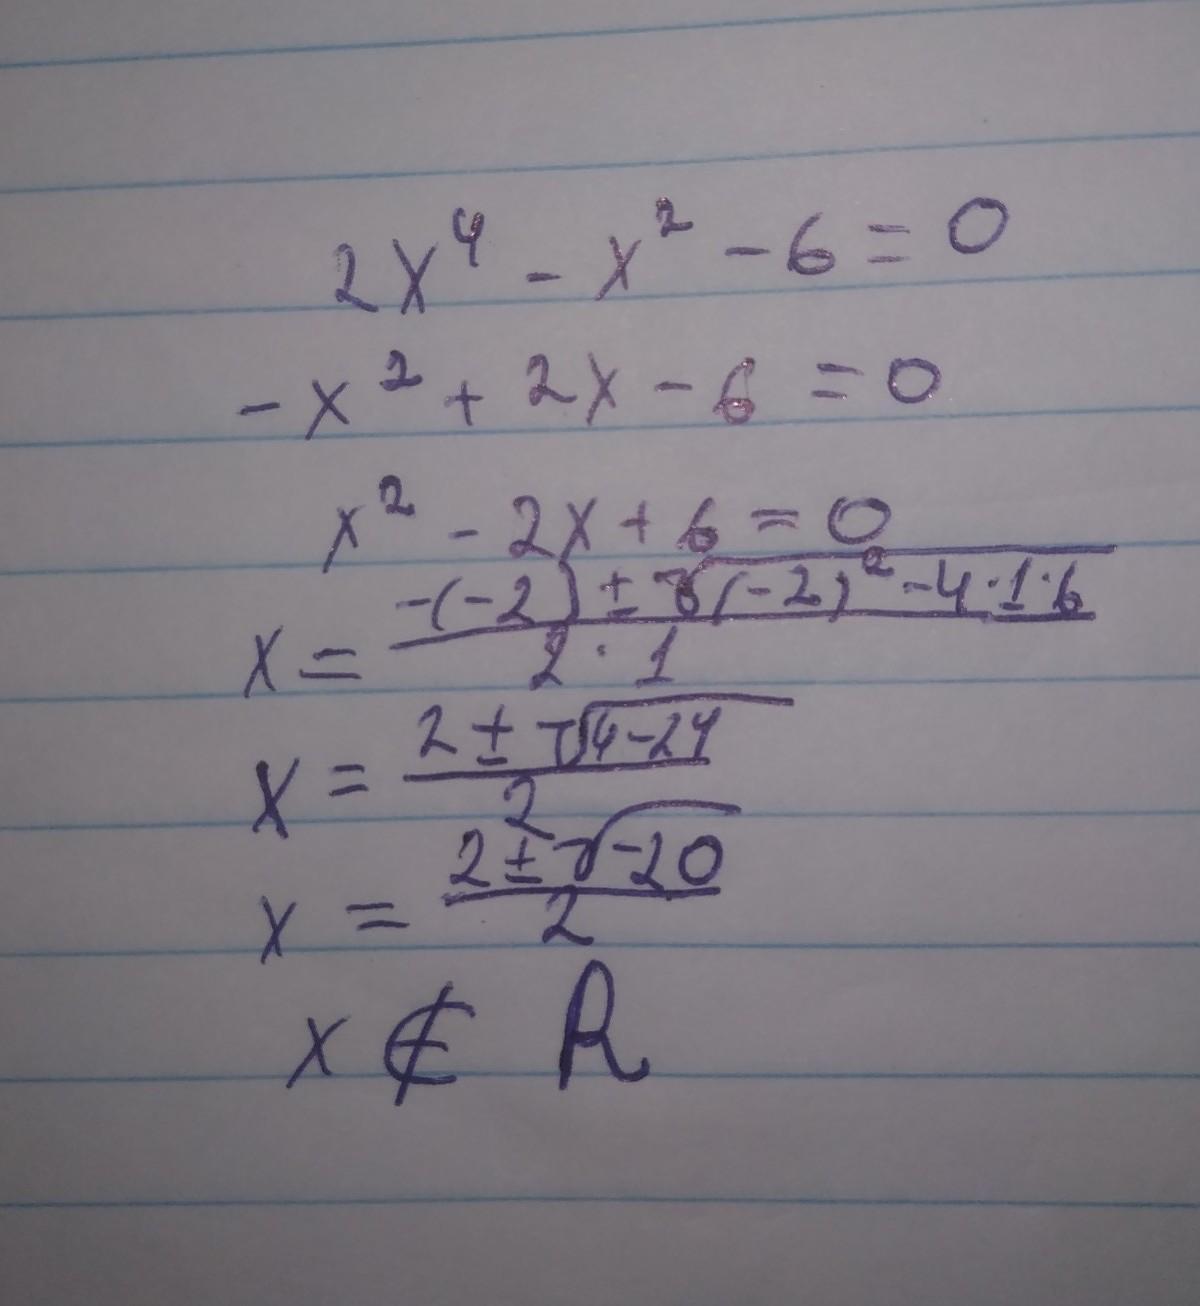 2x⁴ - x² - 6 = 0
-x² + 2x - 6 = 0
x² - 2x + 6 = 0
x = (-(-2) ± √((-2)² - 4·1·6)) / (2·1)
x = (2 ± √(4-24)) / 2
x = (2 ± √(-20)) / 2
x ∉ R